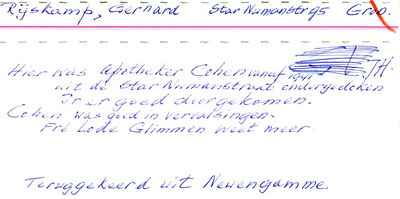 Rijskamp, Gerhard Star Numanstr 95 Gron.
Hier was Apotheker Cohen vanaf 1941 J.H.
uit de Star Numanstraat ondergedoken
Is er goed doorgekomen.
Cohen was goed in vervalsingen.
Frl Lode Glimmen weet meer.
Teruggekeerd uit Neuengamme